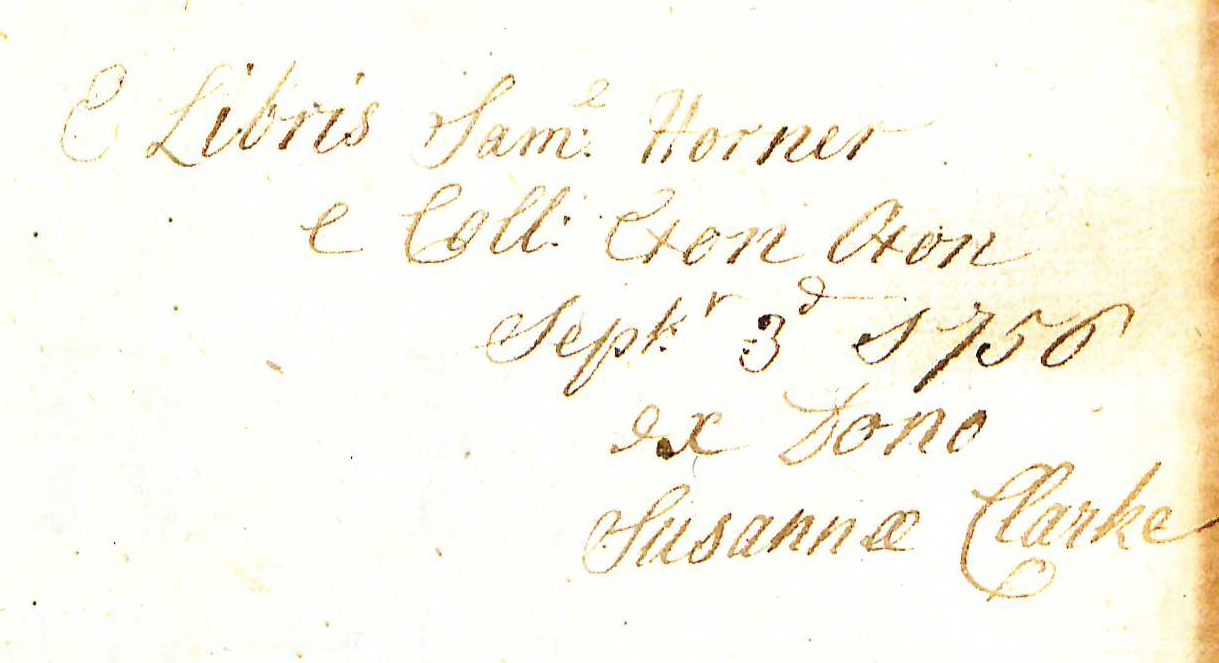 E Libris Sam:e Horner
e Coll: Exon Oxon
Sept:r 3d 1756
ex Dono
Susannæ Clarke